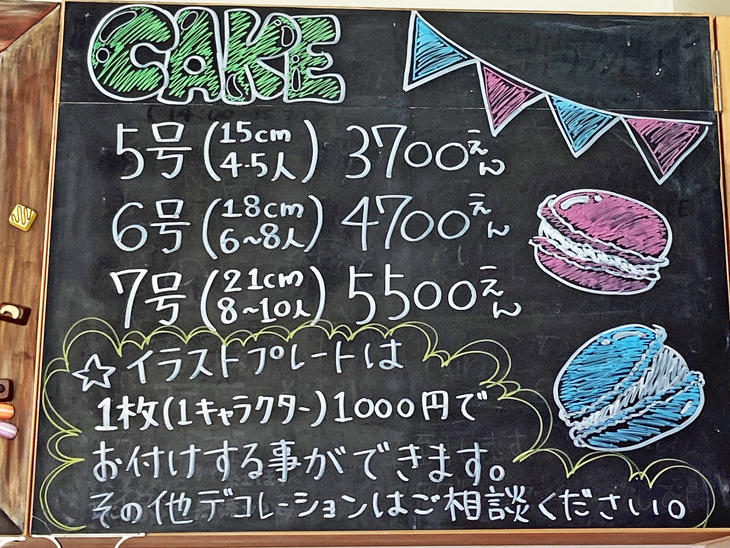 CAKE
5号(15cm 4.5人) 3700えん
6号(18cm 6~8人) 4700えん
7号(21cm 8~10人) 5500えん
☆イラストプレートは
1枚(1キャラクター)1000円で
お付けする事ができます。
その他デコレーションはご相談ください。